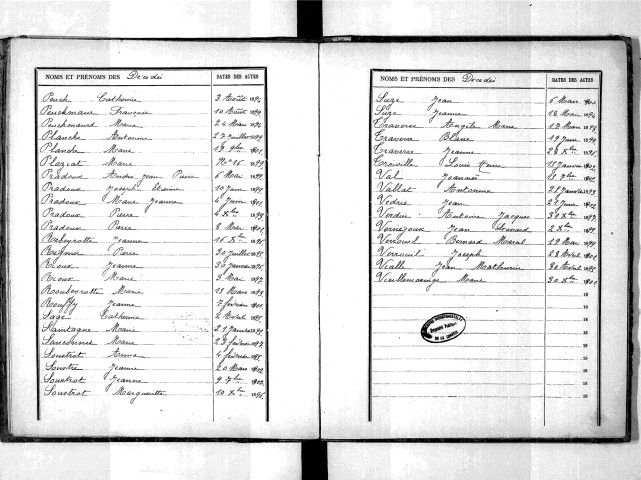 NOMS ET PRÉNOMS DES Décédés DATES DES ACTES
Peuch Catherine 3 Août 1896
Peuchmaur François 10 Août 1899
Peuchmaurd Marie 24 Mars 1896
Planche Antoinne 27 juillet 1899
Planche Marie 19 9bre 1901
Plazcat Marie 1899
Pradoux André Jean Pierre 6 Mai 1899
Pradoux Joseph Etienne 10 juin 1899
Pradoux Marie Jeanne 4 juin 1901
Pradoux Pierre 4 Xbre 1899
Pradoux Pierre 8 Mai 1901
Rebeyrotte Jeanne 16 Xbre 1896
Reynier Pierre 30 juillet 1895
Rioux Jeanne 30 janvier 1895
Rioux Marie 3 Mai 1897
Rouberotte Marie 18 Mars 1899
Rouffy Jeanne 7 février 1901
Sage Catherine 2 Avril 1895
Slamtagne Marie 21 janvier
Sanconnie Marie 23 février 1897
Soustrot Anna 4 février 1895
Soustre Jeanne 20 Mars 1902
Soustrot Jeanne 9 7bre 1902
Soustrot Marguerite 10 Xbre 1895
NOMS ET PRÉNOMS DES Décédés DATES DES ACTES
Suze Jean 6 Mars
Suze Jeanne 18 Mai 1896
Traverse Angèle Marie 17 Mars 1898
Travers Blaise 19 juin
Traverse Jeanne 28 Xbre 1895
Troiville Louis 15 janvier 1902
Val Jeanne 18 7bre
Vallat Antoinne 21 janvier 1899
Vedre Jean 21 juin 1902
Verdier Antoine Jacques 30 Xbre 1897
Vernejoux Jean Léonard 2 Xbre
Verrouil Bernard Marcel 19 Mai
Verrouil Joseph 28 Avril 1901
Vialle Jean Mathurin 30 Avril 1895
Vieillemaringe Marie 30 Xbre 1901
18
18
18
18
18
18
18
18
18
ARCHIVES DÉPARTEMENTALES
Dépôts Publics
DE LA CORRÈZE